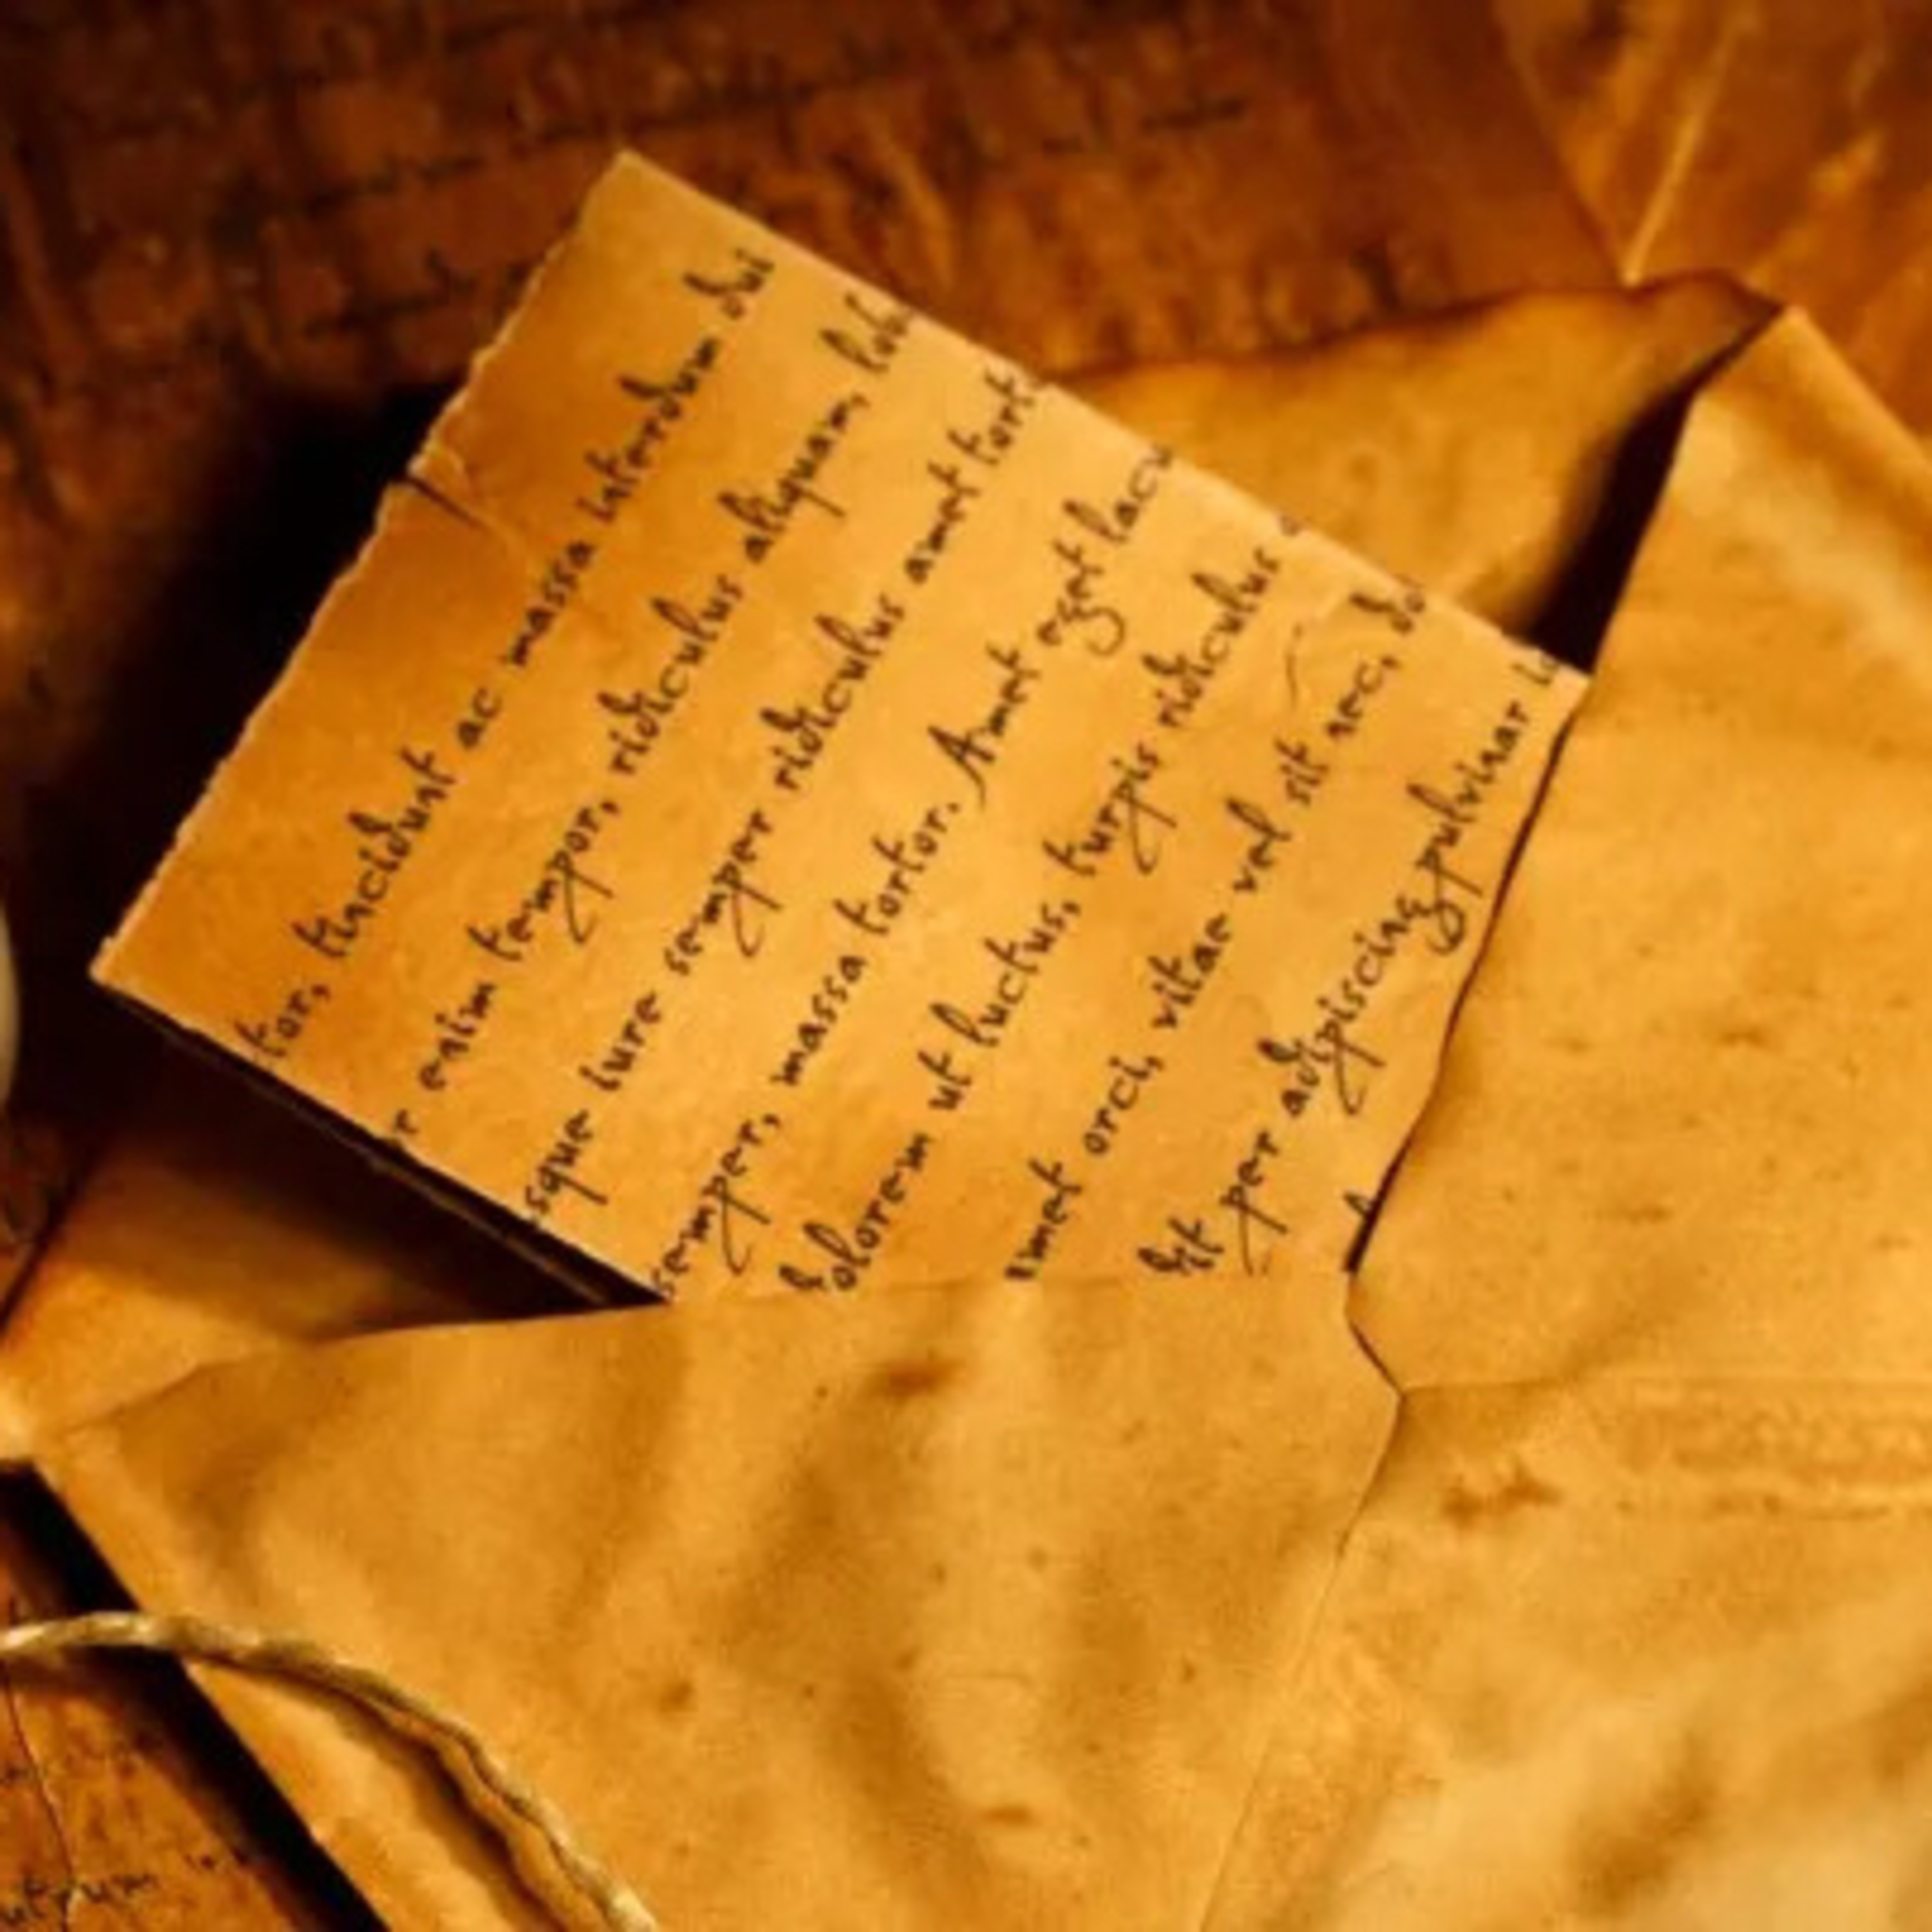 tor, tincidunt ac massa interdum dui
r enim tempor, ridiculus aliquam, lobo
sque iure semper ridiculus amet torto
semper, massa tortor. Amet eget lacu
dolorem ut luctus, turpis ridiculus
amet orci, vitae vel sit nec, do
elit per adipiscing pulvinar
utrum